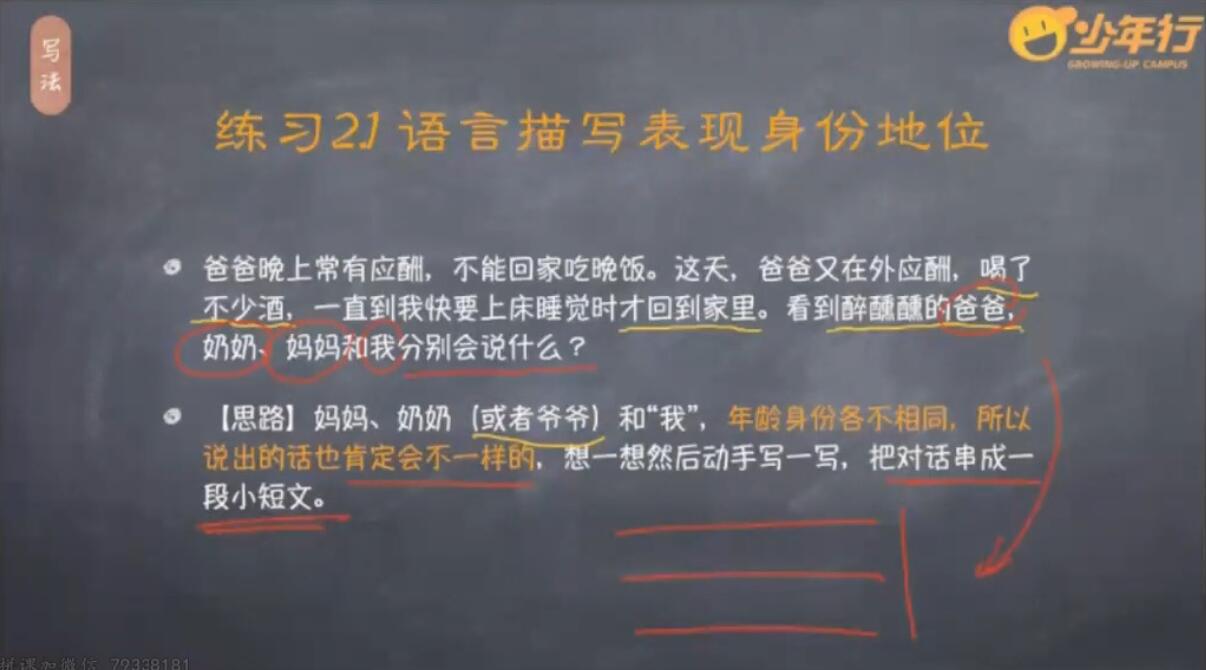 写
法
少年行
GROWING-UP CAMPUS
练习2.1 语言描写表现身份地位
爸爸晚上常有应酬，不能回家吃晚饭。这天，爸爸又在外应酬，喝了
不少酒，一直到我快要上床睡觉时才回到家里。看到醉醺醺的爸爸，
奶奶、妈妈和我分别会说什么？
【思路】妈妈、奶奶（或者爷爷）和“我”，年龄身份各不相同，所以
说出的话也肯定会不一样的，想一想然后动手写一写，把对话串成一
段小短文。
拼课加微信 79338181